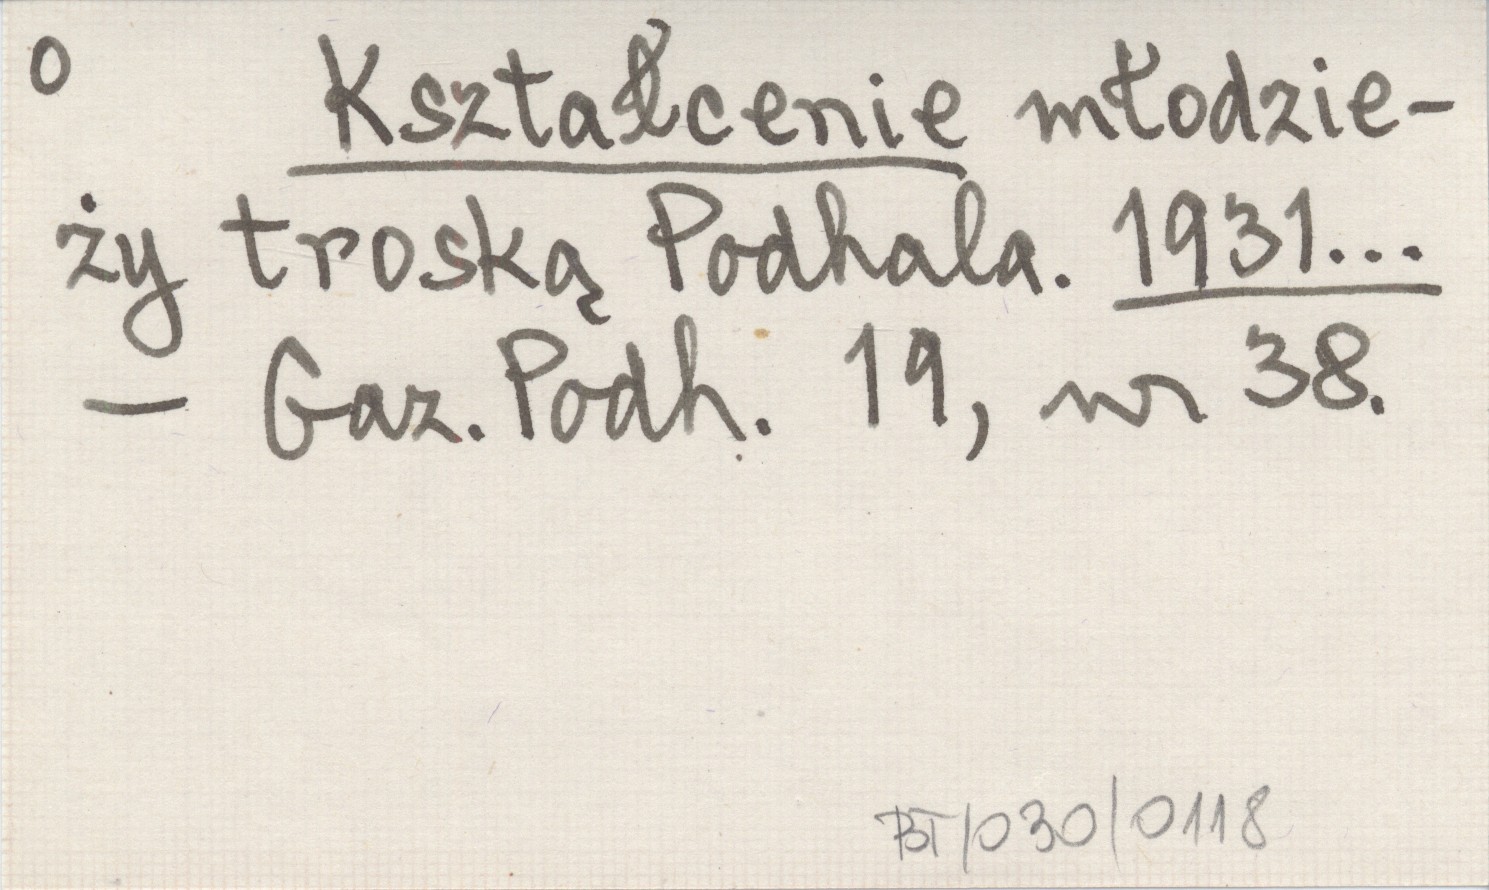 o Kształcenie młodzie-
ży troską Podhala. 1931...
— Gaz. Podh. 19, nr 38.
BT/030/0118